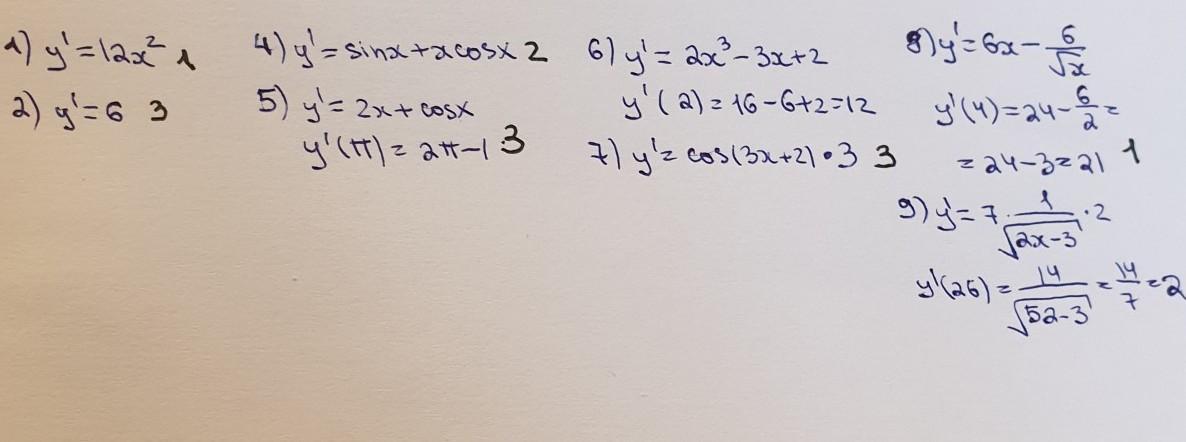 1) y' = 12x² 1
2) y' = 6 3
4) y' = sinx + xcosx 2
5) y' = 2x + cosx
y'(π) = 2π - 1 3
6) y' = 2x³ - 3x + 2
y'(2) = 16 - 6 + 2 = 12
7) y' = cos(3x+2) • 3 3
8) y' = 6x - 6/√x
y'(4) = 24 - 6/2 =
= 24 - 3 = 21 1
9) y' = 7 · 1/√(2x-3) · 2
y'(26) = 14/√(52-3) = 14/7 = 2